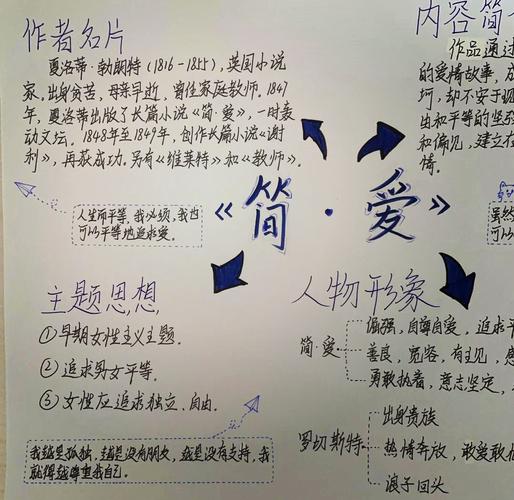 作者名片
夏洛蒂·勃朗特(1816-1855),英国小说
家,出身贫苦,母亲早逝,曾任家庭教师.1847
年,夏洛蒂出版了长篇小说《简·爱》,一时轰
动文坛。1848年至1849年,创作长篇小说《谢
利》,再获成功.另有《维莱特》和《教师》。
内容简
作品通过
的爱情故事,成
坷,却不安于现
由和平等的坚
和偏见,建立在
情。
人生而平等,我必须,我也
可以平等地追求爱。
《简·爱》
虽然
可以
主题思想
①早期女性主义主题.
②追求男女平等.
③女性应追求独立、自由.
我越是孤独,越是没有朋友,越是没有支持,我
就得越尊重我自己.
人物形象
简·爱
倔强,自尊自爱,追求平
善良,宽容,有主见,感
勇敢执着,意志坚定,
罗切斯特
出身贵族
热情奔放,敢爱敢
浪子回头